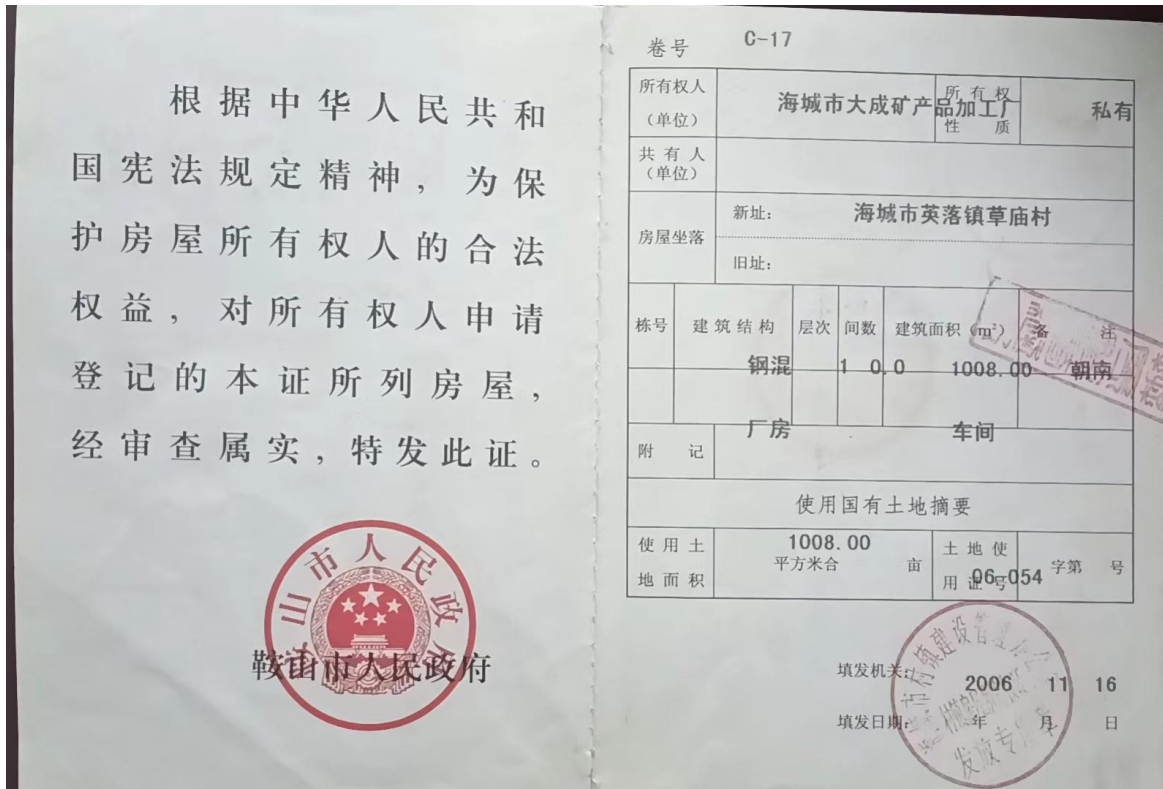 根据中华人民共和
国宪法规定精神，为保
护房屋所有权人的合法
权益，对所有权人申请
登记的本证所列房屋，
经审查属实，特发此证。
鞍山市人民政府
卷号 C-17
所有权人（单位） 海城市大成矿产品加工厂 所有权性质 私有
共有人（单位）
房屋坐落 新址： 海城市英落镇草庙村
旧址：
栋号 建筑结构 层次 间数 建筑面积（m²） 备注
钢混 1 0.0 1008.00 朝南
厂房 车间
附记
使用国有土地摘要
使用土地面积 1008.00 平方米合 亩 土地使用证号 06-054 字第 号
填发机关：
2006 11 16
填发日期： 年 月 日